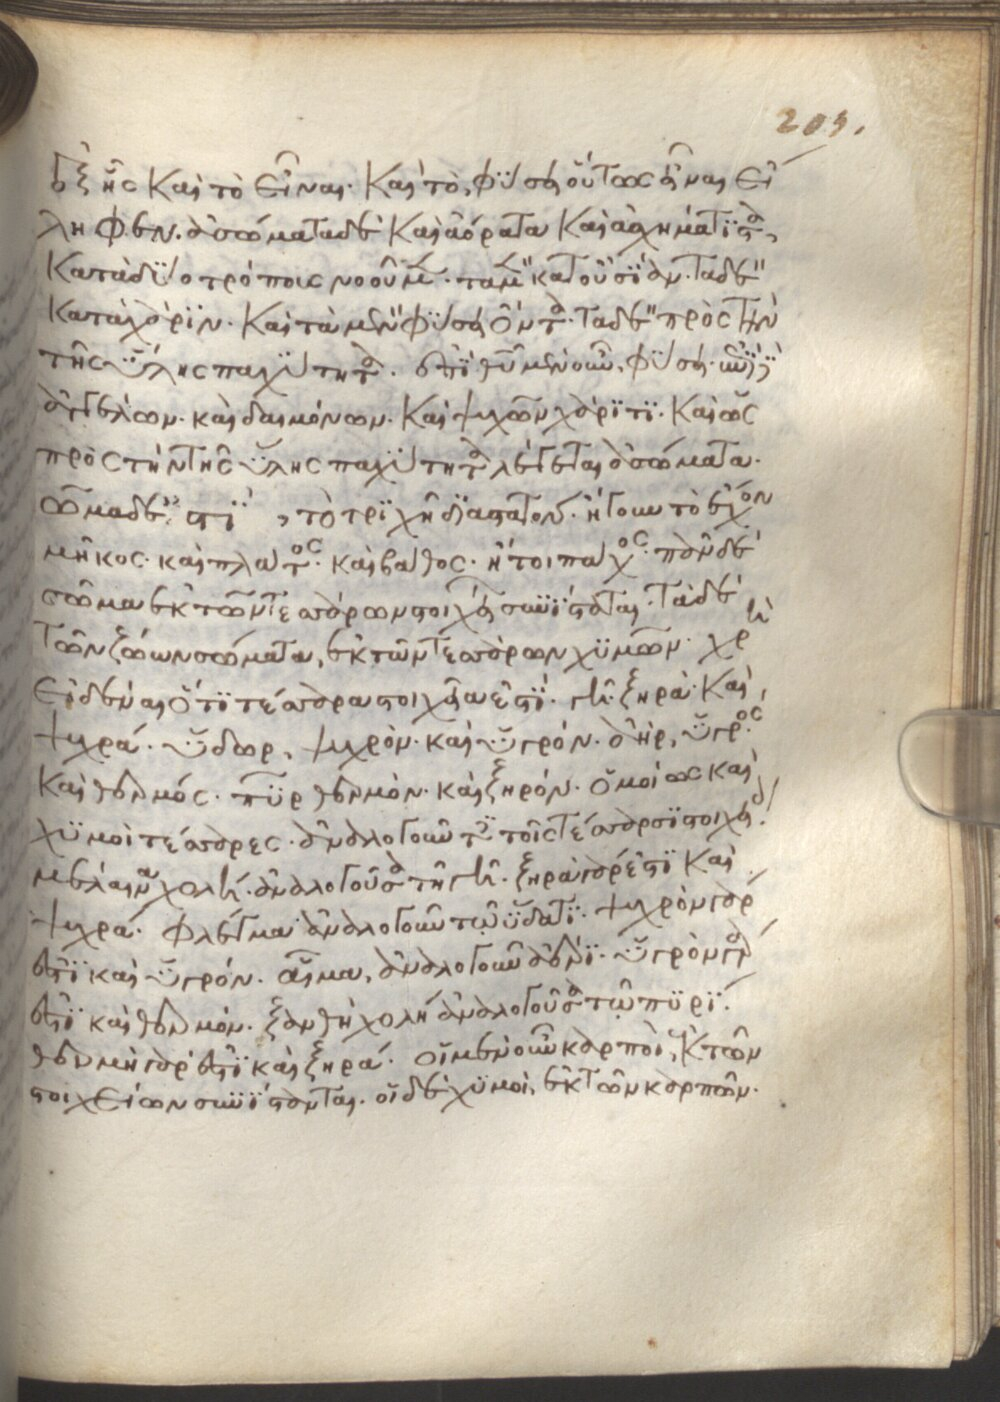 ἐξ ἧς καὶ τὸ εἶναι· καὶ τὸ, φύσει οὕτως εἶναι εἴ
ληφεν. ἀσώματα δὲ καὶ ἀόρατα καὶ ἀσχημάτιστα,
κατὰ δύο τρόπους νοοῦμεν· τὰ μὲν κατ' οὐσίαν· τὰ δὲ
κατὰ χάριν· καὶ τὰ μὲν φύσει ὄντα· τὰ δὲ πρὸς τὴν
τῆς ὕλης παχύτητα. ἐπὶ θῦ μὲν οὖν, φύσει·
ἀγγέλων· καὶ δαιμόνων· καὶ ψυχῶν χάριτι· καὶ ὡς
πρὸς τὴν τῆς ὕλης παχύτητα λέγεται ἀσώματα·
σῶμα δέ ἐστι, τὸ τριχῇ διαστατόν· ἤγουν τὸ ἔχον
μῆκος· καὶ πλάτος· καὶ βάθος· ἤτοι πάχος· πᾶν δὲ
σῶμα ἐκ τῶν τεσσάρων στοιχείων συνίσταται· τὰ δὲ
τῶν ζώων σώματα, ἐκ τῶν τεσσάρων χυμῶν· χρὴ
εἰδέναι ὅτι τέσσαρα στοιχεῖά ἐστι· γῆ· ξηρὰ· καὶ
ψυχρά· ὕδωρ, ψυχρὸν· καὶ ὑγρόν· ἀὴρ, ὑγρὸς
καὶ θερμός· πῦρ θερμὸν· καὶ ξηρόν· ὁμοίως καὶ
χυμοὶ τέσσαρες· ἀναλογοῦντες τοῖς τέσσαρσι στοιχείοις·
μέλαινα χολὴ· ἀναλογοῦσα τῇ γῇ· ξηρὰ γάρ ἐστι καὶ
ψυχρά· φλέγμα ἀναλογοῦν τῷ ὕδατι· ψυχρὸν γάρ
ἐστι καὶ ὑγρόν· αἷμα, ἀναλογοῦν ἀέρι· ὑγρὸν γάρ
ἐστι καὶ θερμόν· ξανθὴ χολὴ ἀναλογοῦσα τῷ πυρί·
θερμὴ γάρ ἐστι καὶ ξηρά· οἱ μὲν οὖν καρποὶ, ἐκ τῶν
στοιχείων συνίστανται· οἱ δὲ χυμοὶ, ἐκ τῶν καρπῶν·